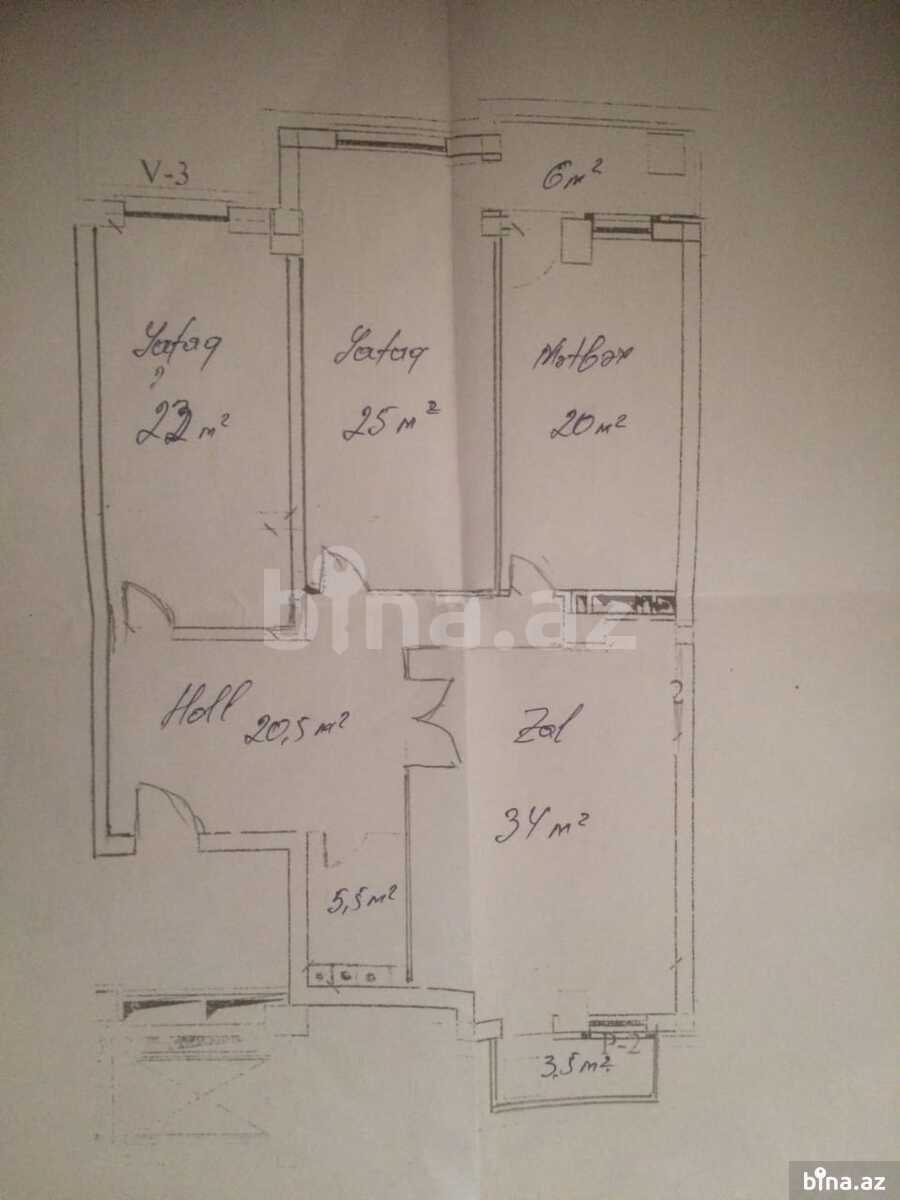 V-3
6 м²
Yataq
22 м²
Yataq
25 м²
Mətbəx
20 м²
bina.az
Holl
20,5 м²
Zal
34 м²
2
5,5 м²
P-2
3,5 м²
bina.az